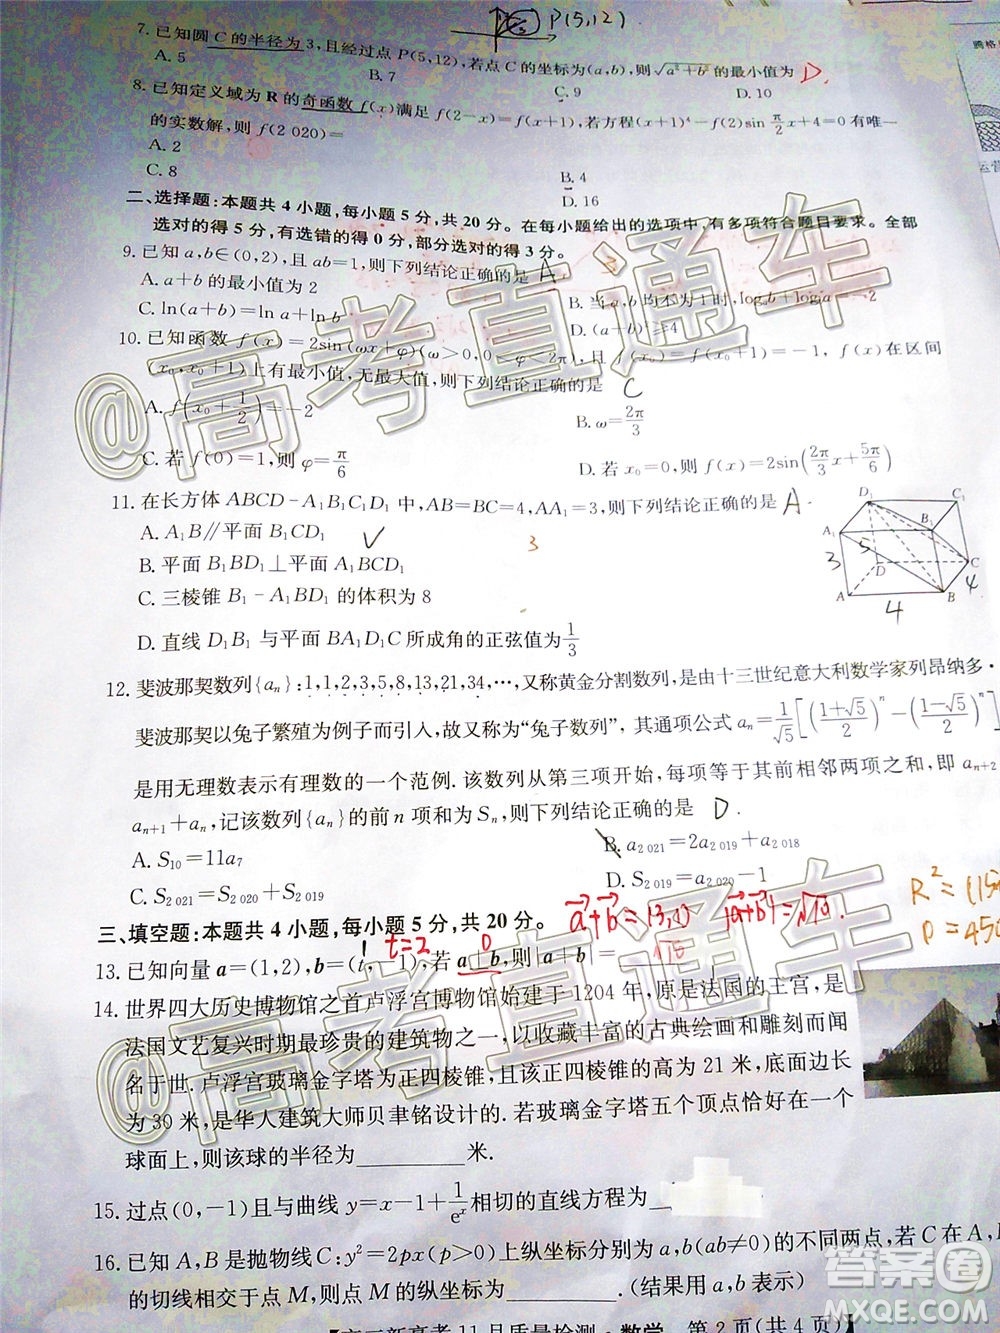 P(5,12)
7. 已知圆 C 的半径为 3,且经过点 P(5,12),若点 C 的坐标为(a,b),则 √(a²+b²) 的最小值为 D.
A. 5
B. 7
C. 9
D. 10
8. 已知定义域为 R 的奇函数 f(x)满足 f(2-x)=f(x+1),若方程(x+1)⁴-f(2)sin π/2 x+4=0 有唯一
的实数解,则 f(2 020)=
A. 2
B. 4
C. 8
D. 16
二、选择题:本题共 4 小题,每小题 5 分,共 20 分。在每小题给出的选项中,有多项符合题目要求。全部
选对的得 5 分,有选错的得 0 分,部分选对的得 3 分。
9. 已知 a,b∈(0,2),且 ab=1,则下列结论正确的是 A
A. a+b 的最小值为 2
B. 当 a,b 均不为 1 时,log_a b+log_b a=-2
C. ln(a+b)=ln a+ln b
≥4
10. 已知函数 f(x)=2sin(ωx+φ)(ω>0
在区间
(x₀,x₀+1)上有最小值,无最大值,则下列结论正确的是 C
A. f(x₀+1/2)=-2
B. ω=2π/3
C. 若 f(0)=1,则 φ=π/6
D. 若 x₀=0,则 f(x)=2sin(2π/3 x+5π/6)
11. 在长方体 ABCD-A₁B₁C₁D₁ 中,AB=BC=4,AA₁=3,则下列结论正确的是 A
A. A₁B∥平面 B₁CD₁ √
3
B. 平面 B₁BD₁⊥平面 A₁BD₁
C. 三棱锥 B₁-A₁BD₁ 的体积为 8
D. 直线 D₁B₁ 与平面 BA₁D₁C 所成角的正弦值为 1/3
D₁ C₁
A₁ B₁
3 5 D C
4
A 4 B
12. 斐波那契数列{aₙ}:1,1,2,3,5,8,13,21,34,…,又称黄金分割数列,是由十三世纪意大利数学家列昂纳多·
斐波那契以兔子繁殖为例子而引入,故又称为“兔子数列”,其通项公式 aₙ=1/√5[((1+√5)/2)ⁿ-((1-√5)/2)ⁿ
是用无理数表示有理数的一个范例. 该数列从第三项开始,每项等于其前相邻两项之和,即 aₙ₊₂
aₙ₊₁+aₙ,记该数列{aₙ}的前 n 项和为 Sₙ,则下列结论正确的是 D.
A. S₁₀=11a₇
B. a₂ ₀₂₁=2a₂ ₀₁₉+a₂ ₀₁₈
C. S₂ ₀₂₁=S₂ ₀₂₀+S₂ ₀₁₉
D. S₂ ₀₁₉=a₂ ₀₂₀-1
三、填空题:本题共 4 小题,每小题 5 分,共 20 分。
13. 已知向量 a=(1,2),b=(t,-1),若 a⊥b,则|a+b|=
t=2
√10
14. 世界四大历史博物馆之首卢浮宫博物馆始建于 1204 年,原是法国的王宫,是
法国文艺复兴时期最珍贵的建筑物之一,以收藏丰富的古典绘画和雕刻而闻
名于世. 卢浮宫玻璃金字塔为正四棱锥,且该正四棱锥的高为 21 米,底面边长
为 30 米,是华人建筑大师贝聿铭设计的. 若玻璃金字塔五个顶点恰好在一个
球面上,则该球的半径为________米.
15. 过点(0,-1)且与曲线 y=x-1+1/eˣ相切的直线方程为
16. 已知 A,B 是抛物线 C:y²=2px(p>0)上纵坐标分别为 a,b(ab≠0)的不同两点,若 C 在 A,
的切线相交于点 M,则点 M 的纵坐标为________. (结果用 a,b 表示)
【高三新高考 11 月质量检测·数学 第 2 页(共 4 页)】
@高考直通车
@高考直通车
答案圈
MXQE.COM